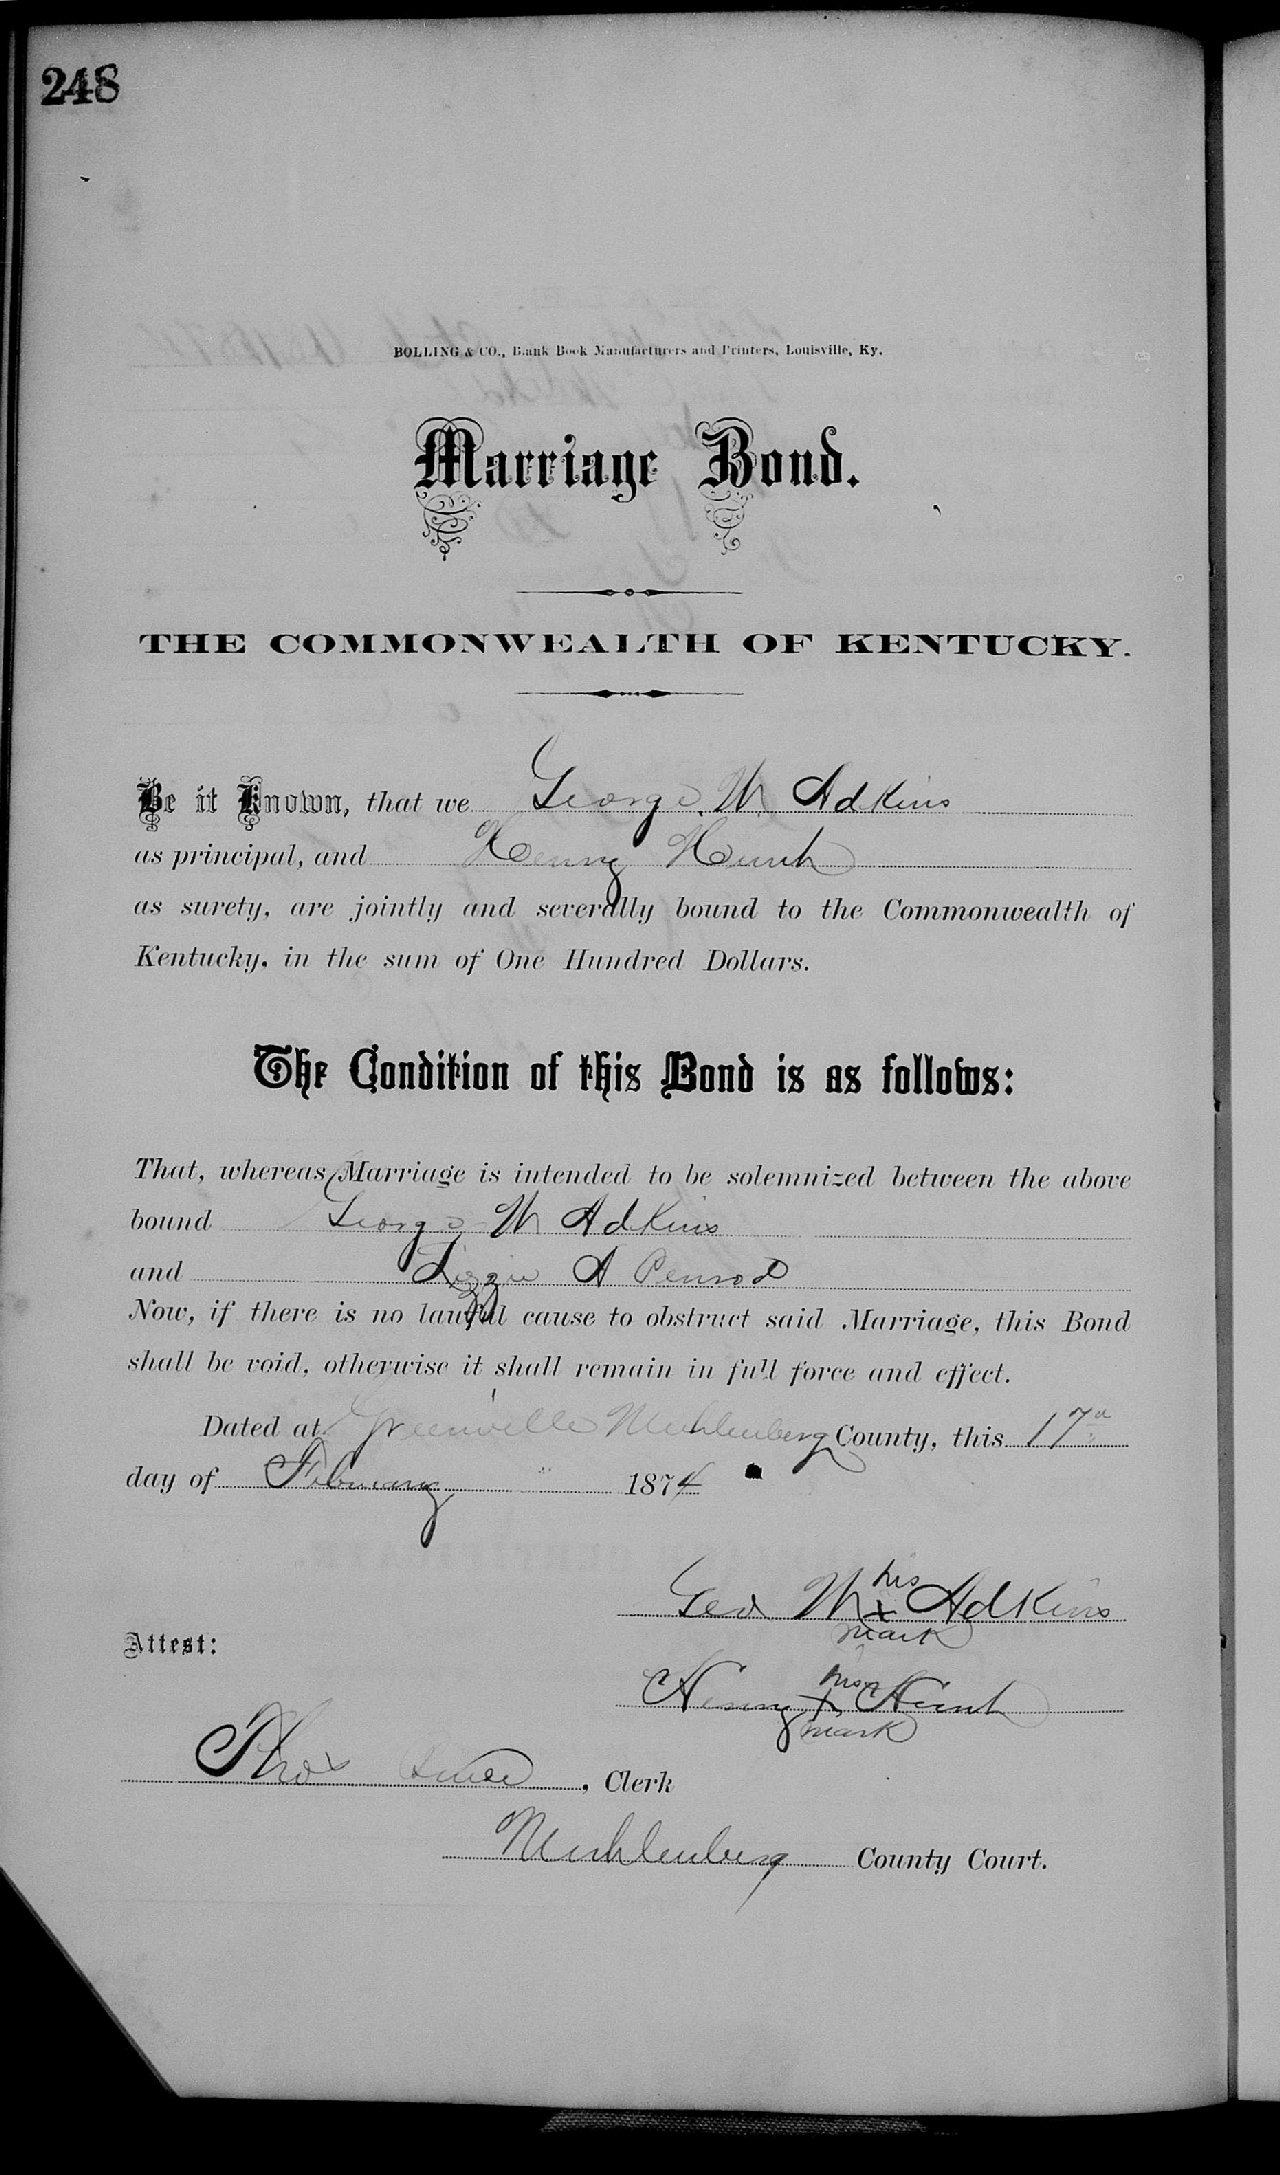 248
BOLLING & CO., Blank Book Manufacturers and Printers, Louisville, Ky.
Marriage Bond.
THE COMMONWEALTH OF KENTUCKY.
Be it Known, that we George W Adkins
as principal, and Henry
as surety, are jointly and severally bound to the Commonwealth of
Kentucky, in the sum of One Hundred Dollars.
The Condition of this Bond is as follows:
That, whereas Marriage is intended to be solemnized between the above
bound George W Adkins
and Lizzie A Penrod
Now, if there is no lawful cause to obstruct said Marriage, this Bond
shall be void, otherwise it shall remain in full force and effect.
Dated at Greenville Muhlenberg County, this 17
day of February 1874
his
Geo W x Adkins
mark
Attest:
his
Henry x
mark
Thos , Clerk
Muhlenberg County Court.